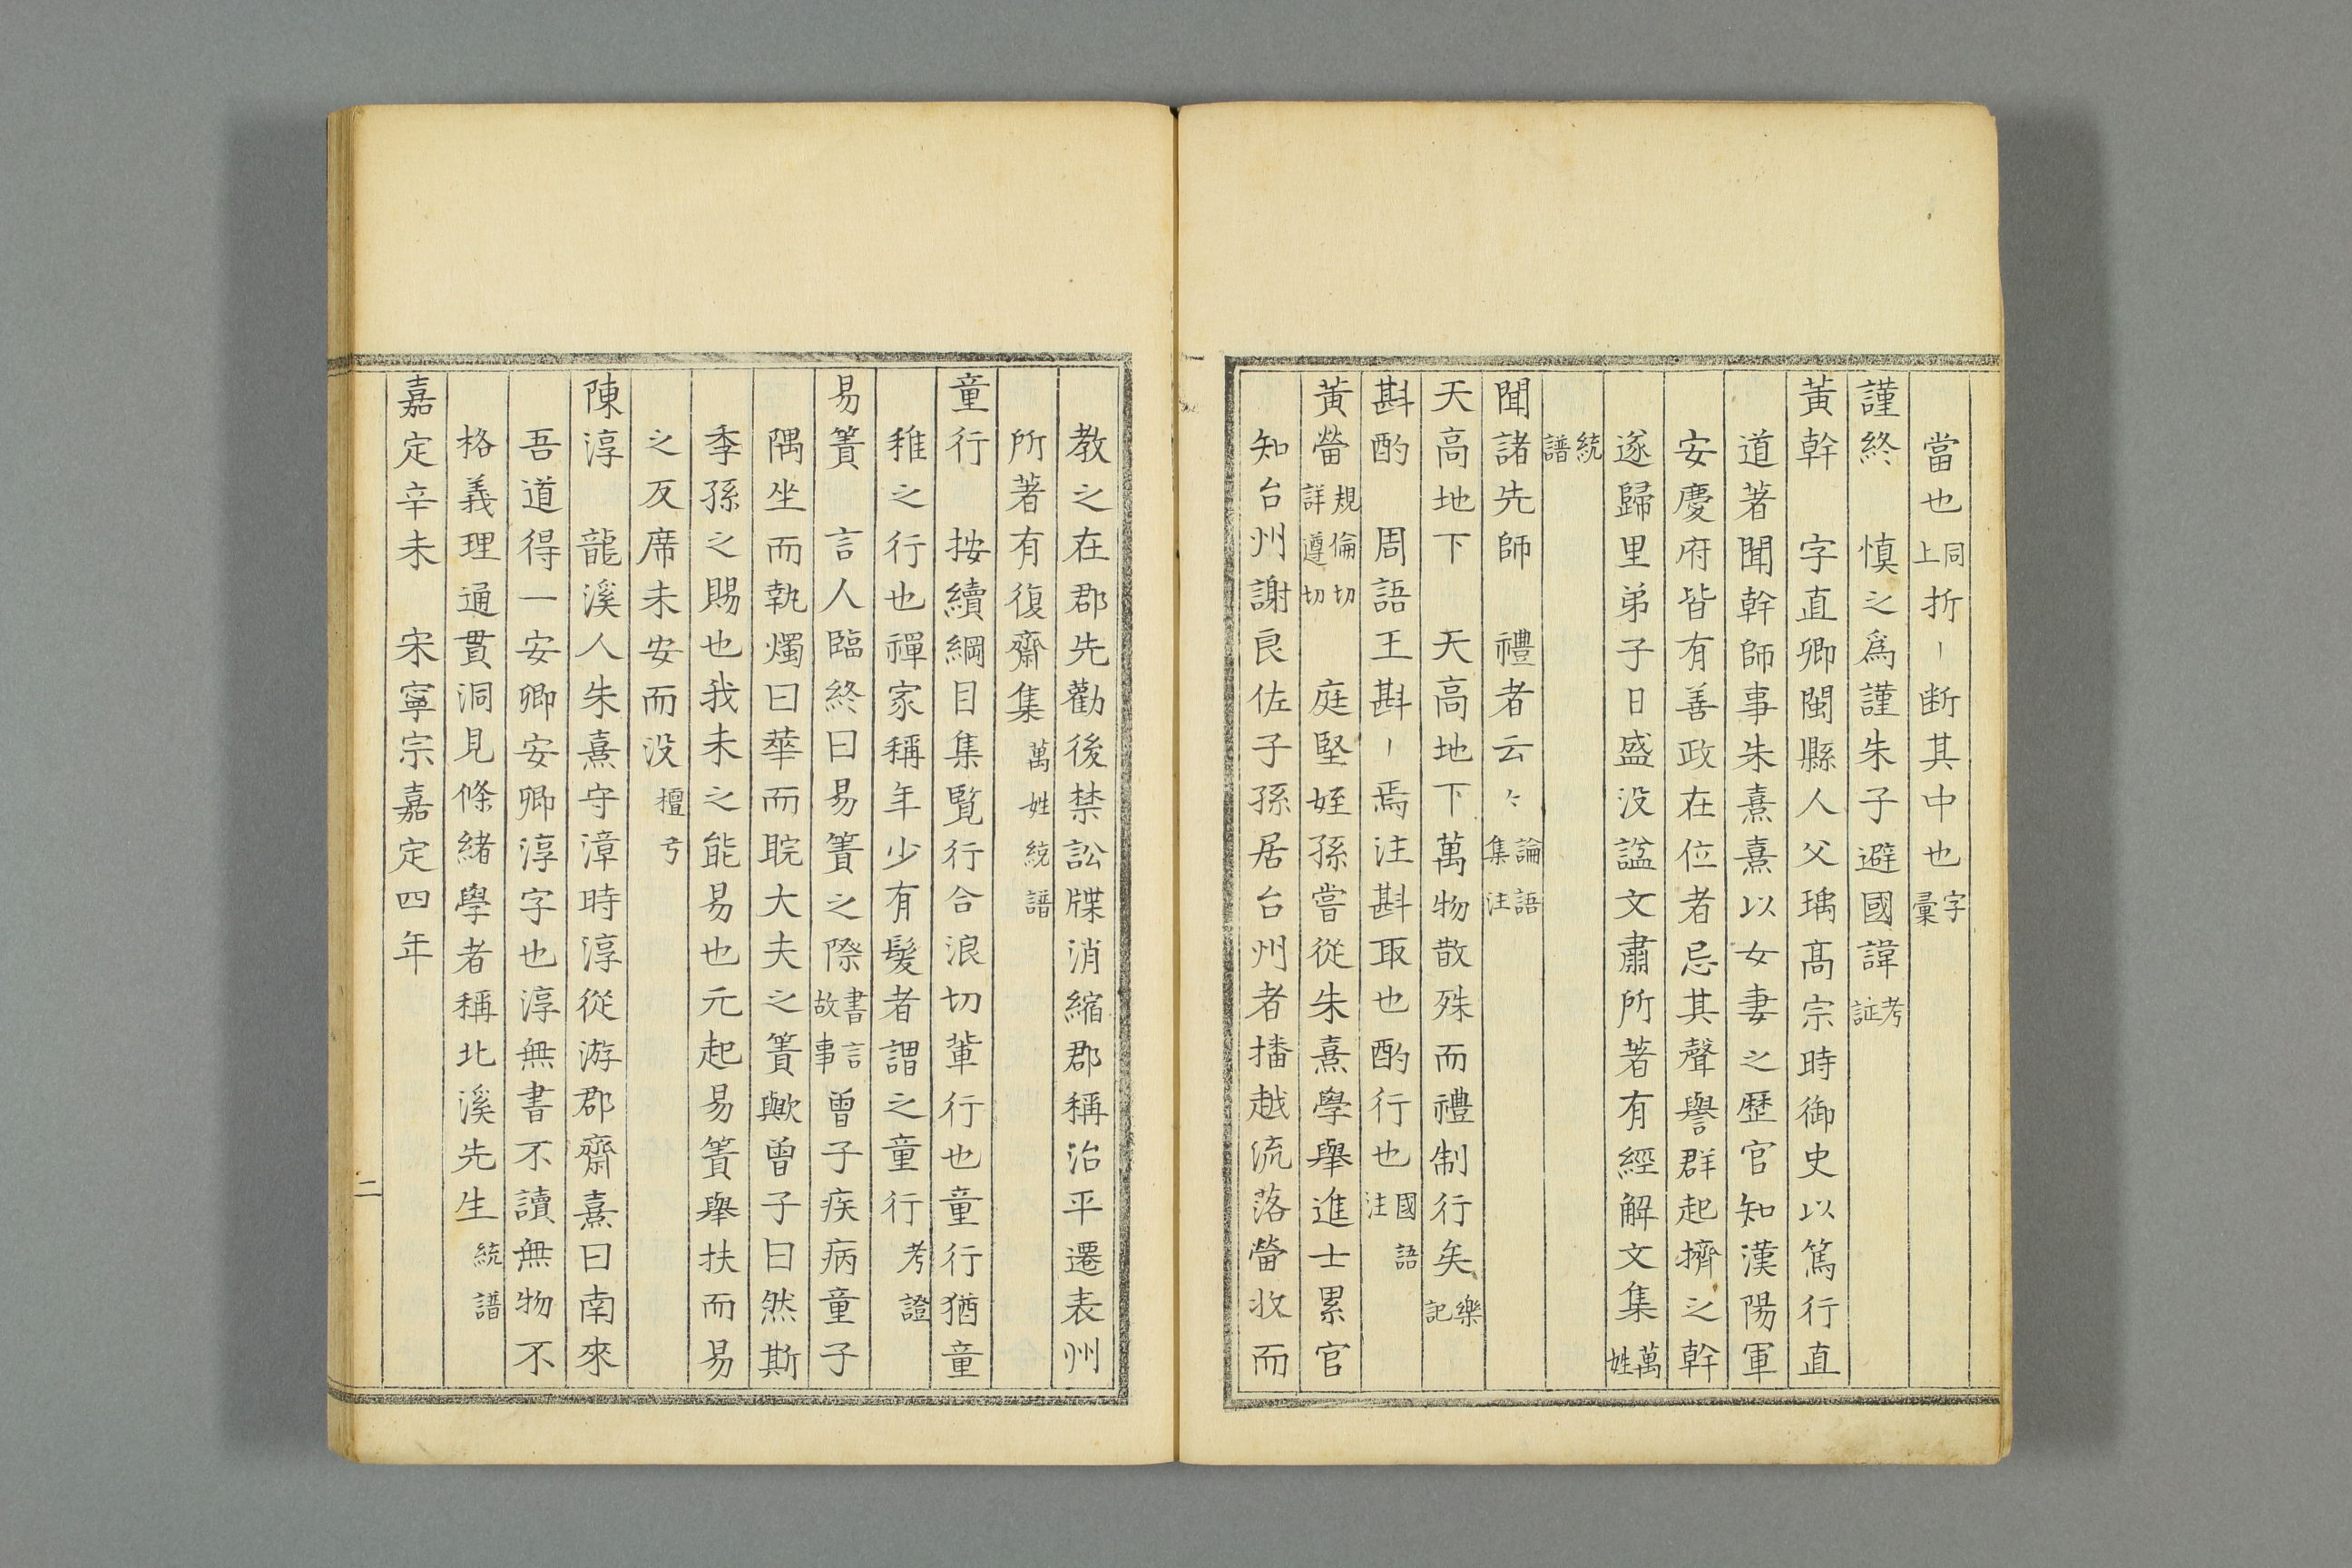 當也同上折丨断其中也字彙
謹終　慎之爲謹朱子避國諱考証
黃幹　字直卿閩縣人父瑀髙宗時御史以篤行直
道著聞幹師事朱熹熹以女妻之歷官知漢陽軍
安慶府皆有善政在位者忌其聲譽群起擠之幹
遂歸里弟子日盛没諡文肅所著有經解文集萬姓
統譜
聞諸先師　禮者云々論語集注
天高地下　天高地下萬物散殊而禮制行矣樂記
斟酌　周語王斟丨焉注斟取也酌行也國語注
黃㽦規倫切詳遵切　庭堅姪孫嘗從朱熹學舉進士累官
知台州謝良佐子孫居台州者播越流落㽦收而
教之在郡先勸後禁訟牒消縮郡稱治平遷表州
所著有復齋集萬姓統譜
童行　按續綱目集覽行合浪切輩行也童行猶童
稚之行也禪家稱年少有髮者謂之童行考證
易簀　言人臨終曰易簀之際書言故事曾子疾病童子
隅坐而執燭曰華而睆大夫之簀歟曾子曰然斯
季孫之賜也我未之能易也元起易簀舉扶而易
之反席未安而没檀弓
陳淳　龍溪人朱熹守漳時淳從游郡齋熹曰南來
吾道得一安卿安卿淳字也淳無書不讀無物不
格義理通貫洞見條緒學者稱北溪先生統譜
嘉定辛未　宋寧宗嘉定四年
二